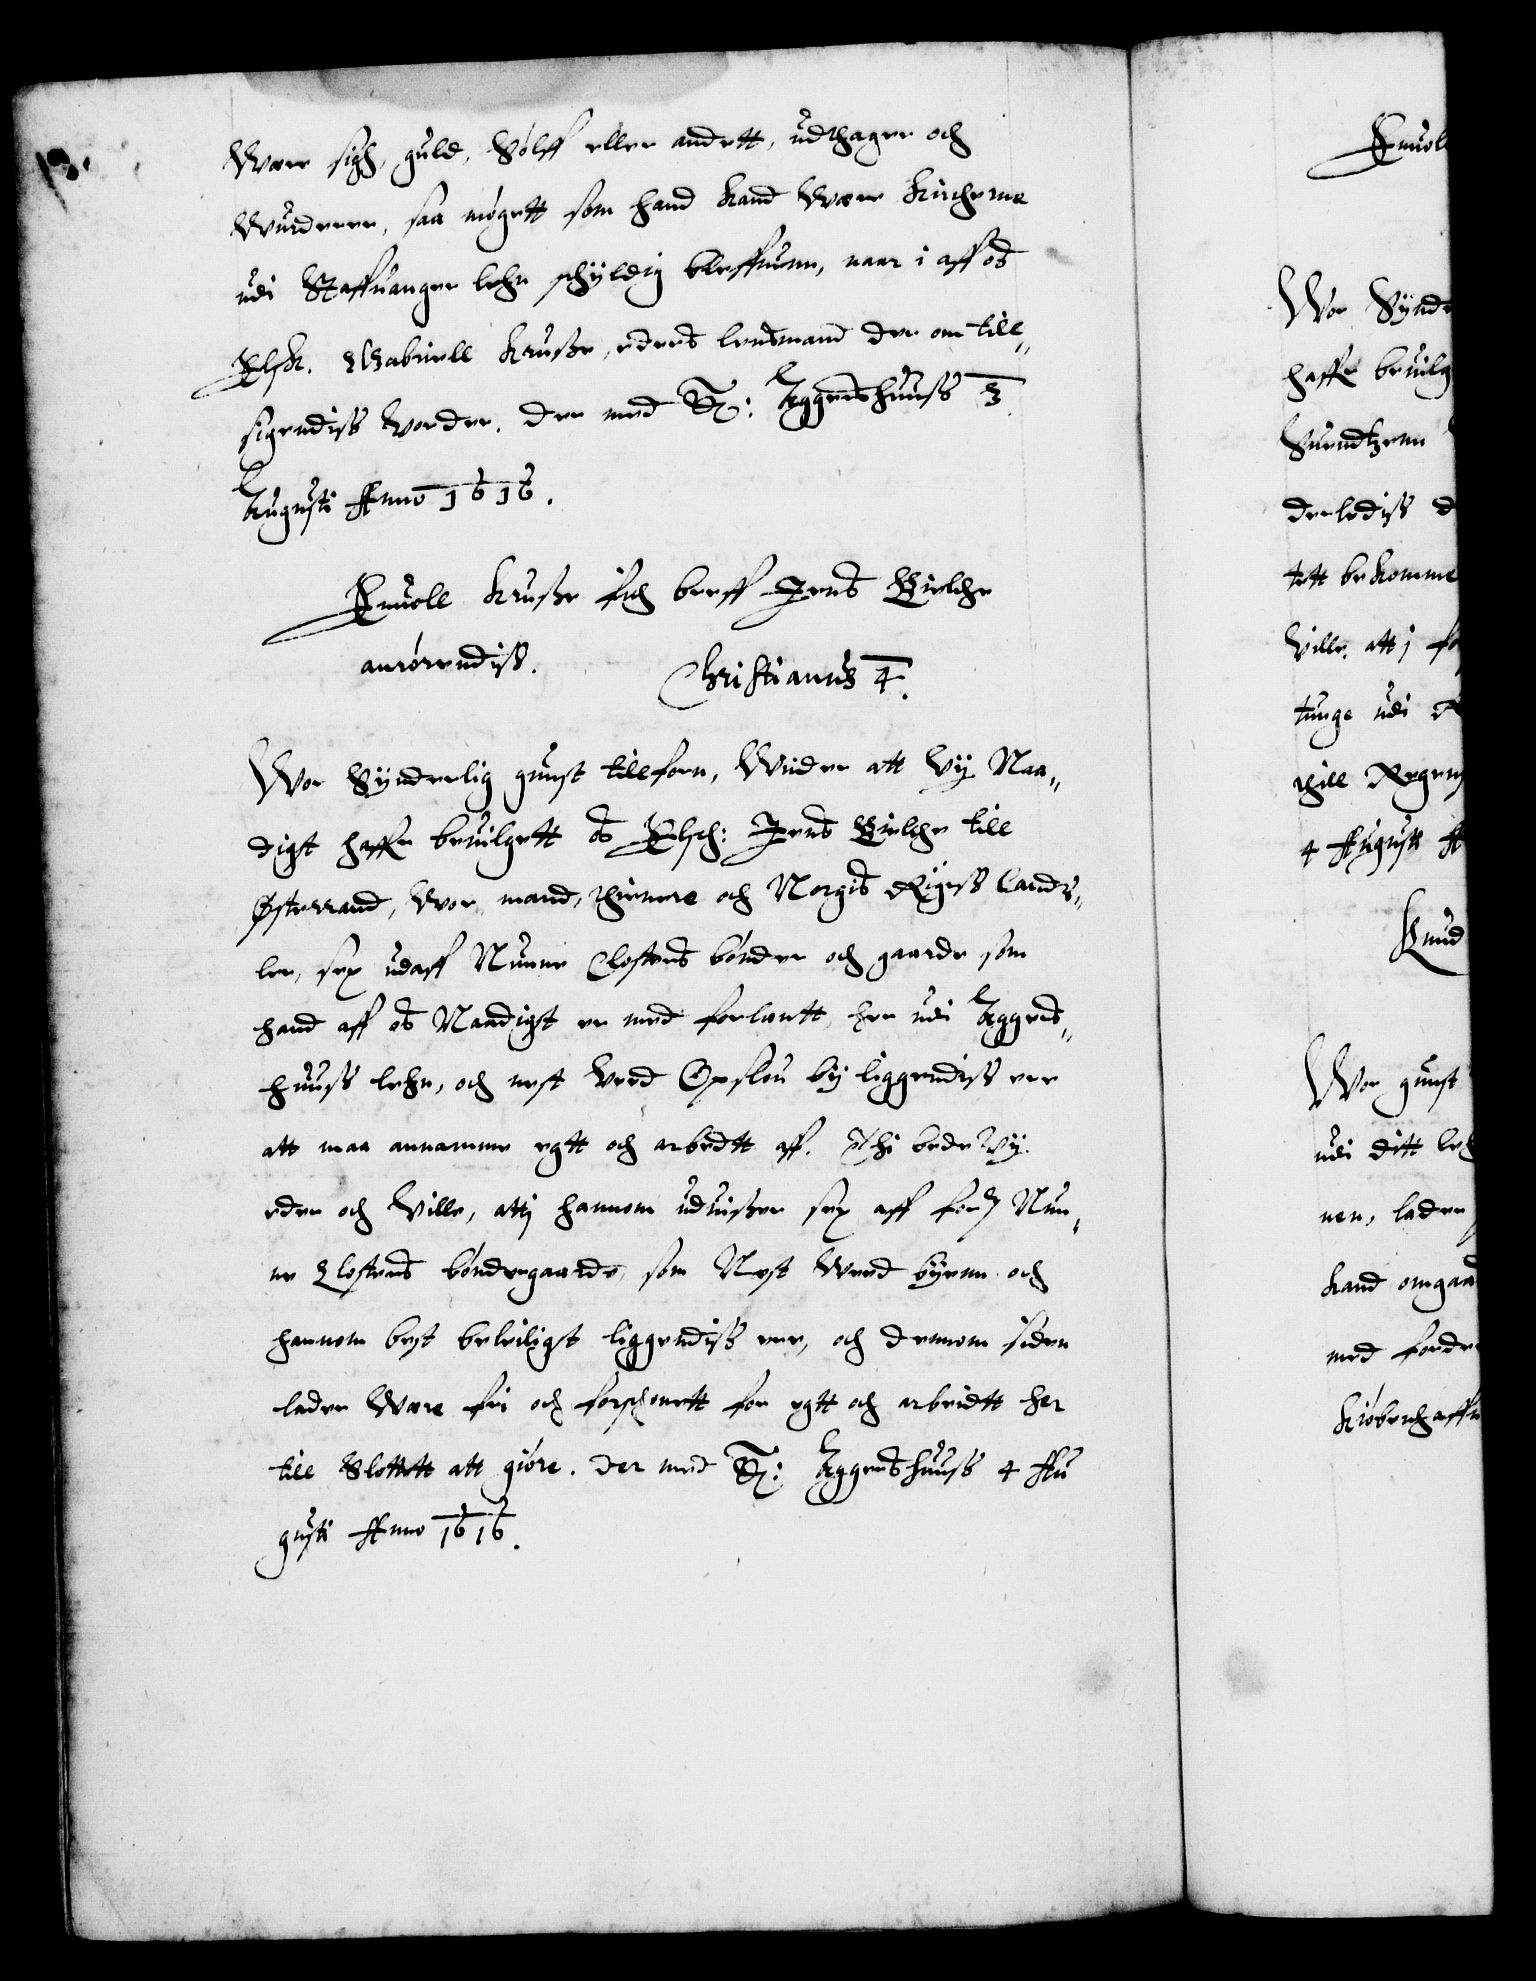 Were sigh, guld, Sölff eller andett, udthager och
Wurderer, saa mögett som hand kand Were Kircherne
udi Staffuanger lehn schÿldig bleffuenn, naar i aff os
Elsk. Gabriell Kruse, eders lensmand der om till„
sigendiss vorder. der med Aggershuuss 3
Augusti Anno 1616.
Enuold Kruse fich breff Jens Bielche
anrörendiss.
Christianus 4.
Wor Synderlig gunst tilforn, Wider att Vÿ Naa„
digst haffe beuilgett os Elsch: Jens Bielche till
Østeraad, Wor mand, thienere och Norgis Rigiss Cands„
ler, sex udaff Nunne Closters bönder och gaarde som
hand aff os Naadigst er med forlentt, her udi Aggers„
huuss lehn, och nest Ved Opslou bÿ liggendiss ere
att maa annamme egtt och arbedtt aff. Thi bede Vÿ
eder och Ville, att j hannom uduiser sex aff for: Nun„
ne Closters böndergaarde, som Nest Weed bÿenn och
hannom best beleiligst liggendiss ere, och dennom siden
lader Were fri och forschonett for egtt och arbeidtt her
till Slottett att giöre. Der med Aggershuuss 4 Au
gusti Anno 1616.
Enuol
Wor Synde
haffe beuilg
Suendtzenn
derlediss d
tett bekomme
Ville, att j fo
tunge udi
thill Regens
4 Augusti A
Knud
Wor gunst
udi ditt leh
nen, lader
kand omgaa
med forde
Kiöbenhaffn